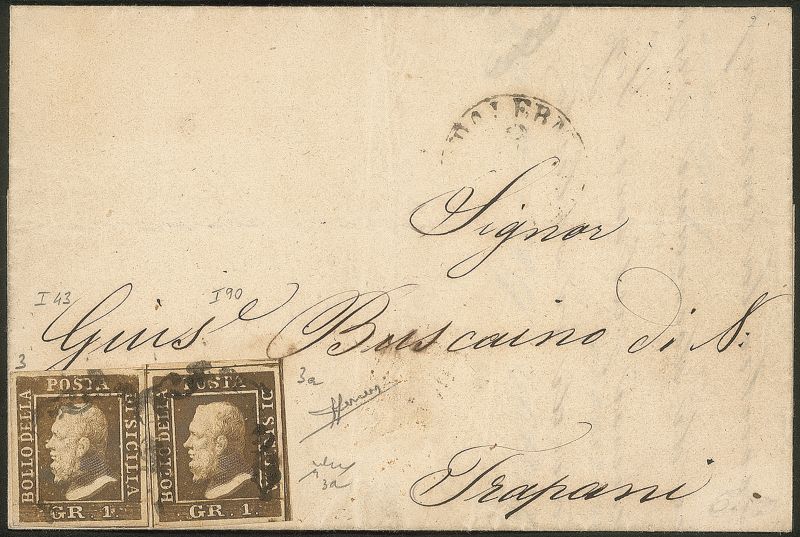 PALERMO
Signor
I 43 I 90
Guis.e Buscaino di N:
3
3a
POSTA
BOLLO DELLA
DI SICILIA
GR. 1.
POSTA
BOLLO DELLA
DI SICILIA
GR. 1.
3a
Trapani